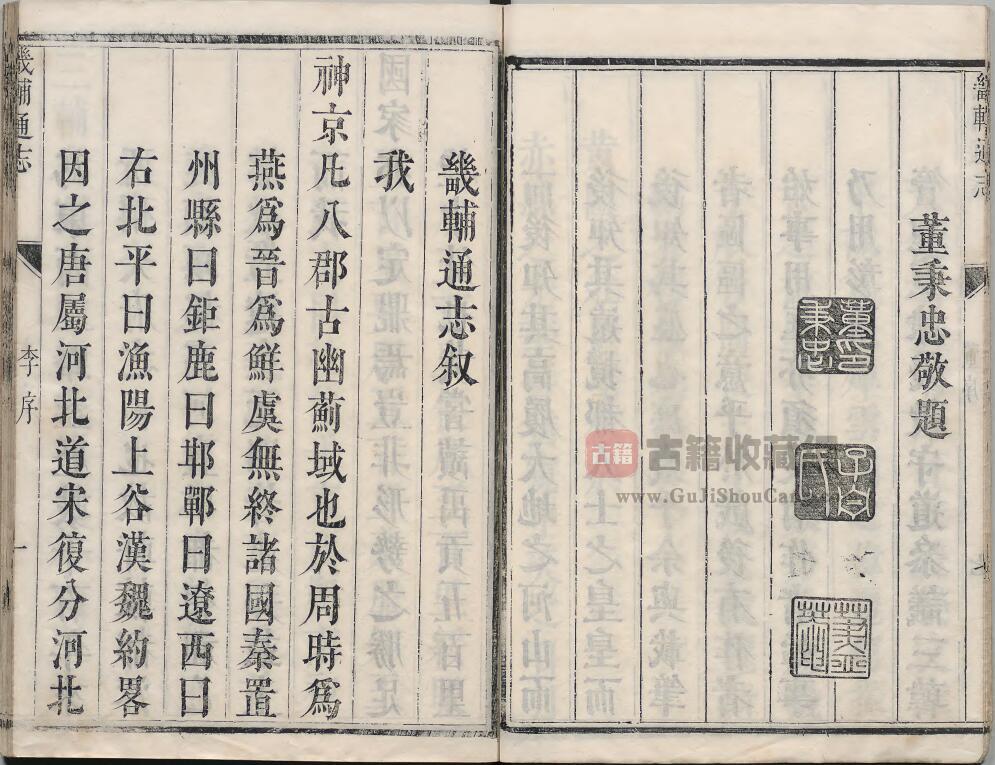 畿輔通志
董秉忠敬題
董秉忠印
古籍
古籍收藏
www.GuJiShouCang
畿輔通志叙
我
神京凡八郡古幽薊域也於周時爲
燕爲晉爲鮮虞無終諸國秦置
州縣曰鉅鹿曰邯鄲曰遼西曰
右北平曰漁陽上谷漢魏約畧
因之唐屬河北道宋復分河北
畿輔通志
李序
一